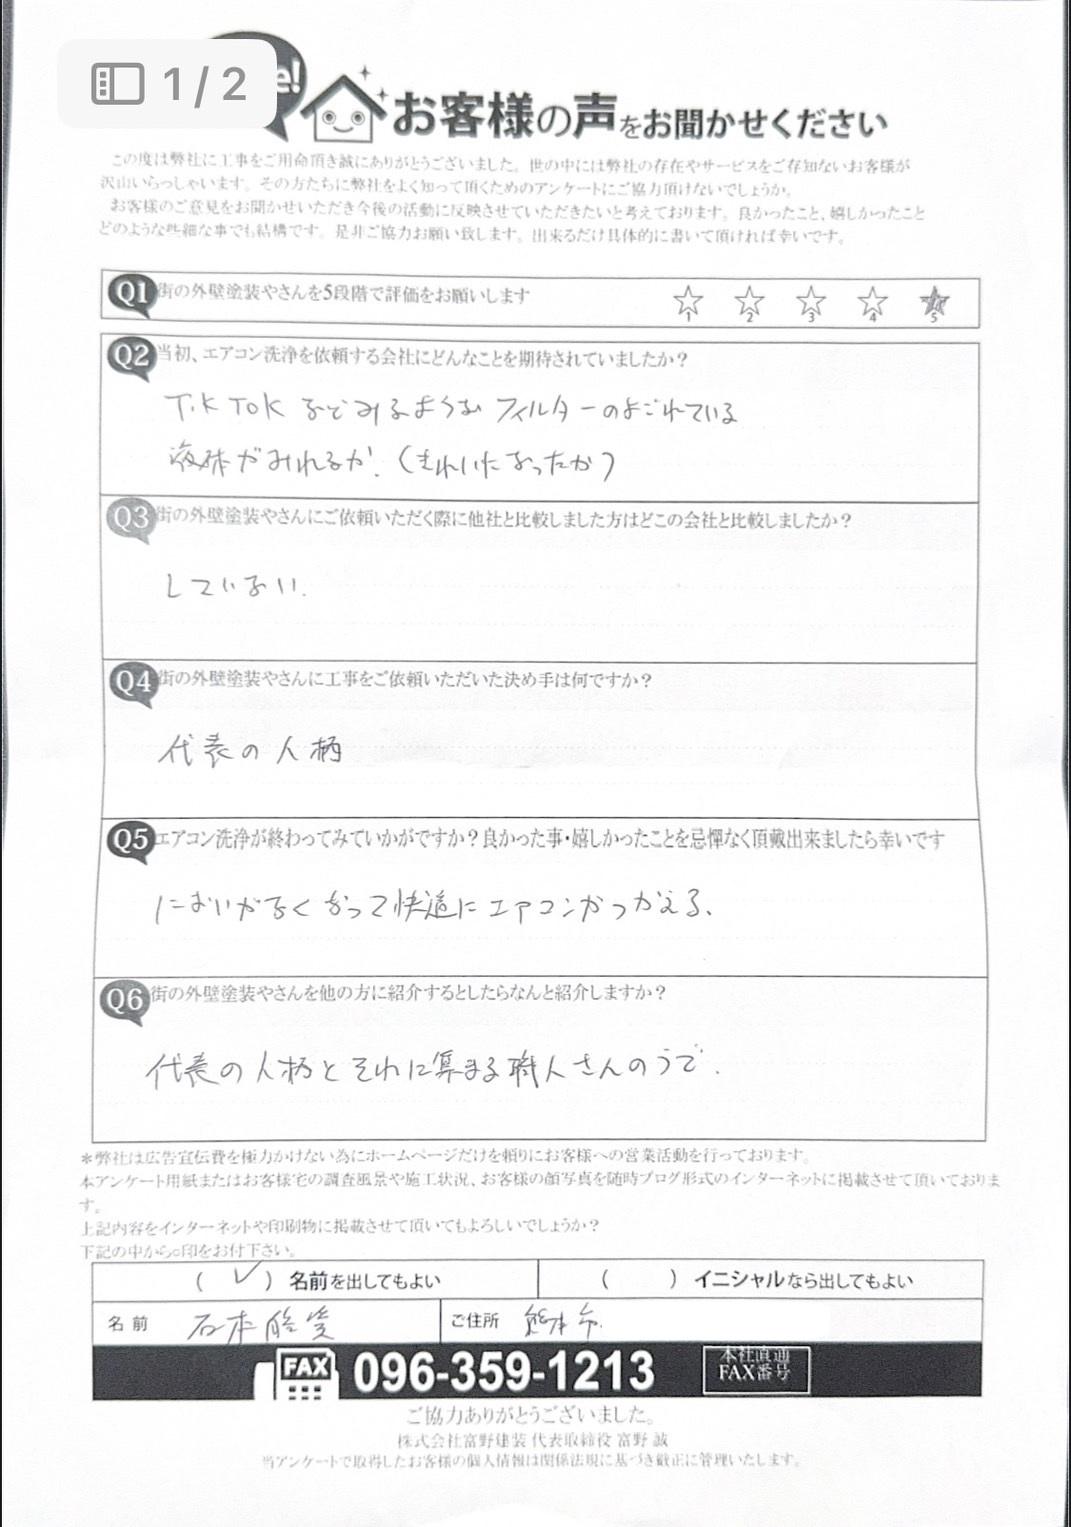 1 / 2
e!
お客様の声をお聞かせください
この度は弊社に工事をご用命頂き誠にありがとうございました。世の中には弊社の存在やサービスをご存知ないお客様が
沢山いらっしゃいます。その方たちに弊社をよく知って頂くためのアンケートにご協力頂けないでしょうか。
お客様のご意見をお聞かせいただき今後の活動に反映させていただきたいと考えております。良かったこと、嬉しかったこと
どのような些細な事でも結構です。是非ご協力お願い致します。出来るだけ具体的に書いて頂ければ幸いです。
Q1 街の外壁塗装やさんを5段階で評価をお願いします
1 2 3 4 5
Q2 当初、エアコン洗浄を依頼する会社にどんなことを期待されていましたか？
TikTokなどでみるようなフィルターのよごれている
液体がみれるか.(きれいになったか)
Q3 街の外壁塗装やさんにご依頼いただく際に他社と比較しました方はどこの会社と比較しましたか？
していない.
Q4 街の外壁塗装やさんに工事をご依頼いただいた決め手は何ですか？
代表の人柄
Q5 エアコン洗浄が終わってみていかがですか？良かった事・嬉しかったことを忌憚なく頂戴出来ましたら幸いです
においがなくなって快適にエアコンがつかえる、
Q6 街の外壁塗装やさんを他の方に紹介するとしたらなんと紹介しますか？
代表の人柄とそれに集まる職人さんのうで.
＊弊社は広告宣伝費を極力かけない為にホームページだけを頼りにお客様への営業活動を行っております。
本アンケート用紙またはお客様宅の調査風景や施工状況、お客様の顔写真を随時ブログ形式のインターネットに掲載させて頂いておりま
す。
上記内容をインターネットや印刷物に掲載させて頂いてもよろしいでしょうか？
下記の中から○印をお付下さい。
( ✓ ) 名前を出してもよい ( ) イニシャルなら出してもよい
名前 石本 ご住所 熊本市.
FAX 096-359-1213 本社直通
FAX番号
ご協力ありがとうございました。
株式会社富野建装 代表取締役 富野 誠
当アンケートで取得したお客様の個人情報は関係法規に基づき厳正に管理いたします。